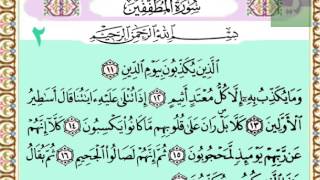 سُورَةُ المُطَفِّفِينَ
٢
بِسْمِ اللَّهِ الرَّحْمَنِ الرَّحِيمِ
الَّذِينَ يُكَذِّبُونَ بِيَوْمِ الدِّينِ ١١
وَمَا يُكَذِّبُ بِهِ إِلَّا كُلُّ مُعْتَدٍ أَثِيمٍ ١٢ إِذَا تُتْلَى عَلَيْهِ ءَايَتُنَا قَالَ أَسَطِيرُ
الْأَوَّلِينَ ١٣ كَلَّا بَلْ رَانَ عَلَى قُلُوبِهِم مَّا كَانُوا يَكْسِبُونَ ١٤ كَلَّا إِنَّهُمْ
عَن رَّبِّهِمْ يَوْمَئِذٍ لَّمَحْجُوبُونَ ١٥ ثُمَّ إِنَّهُمْ لَصَالُوا الْجَحِيمِ ١٦ ثُمَّ يُقَالُ